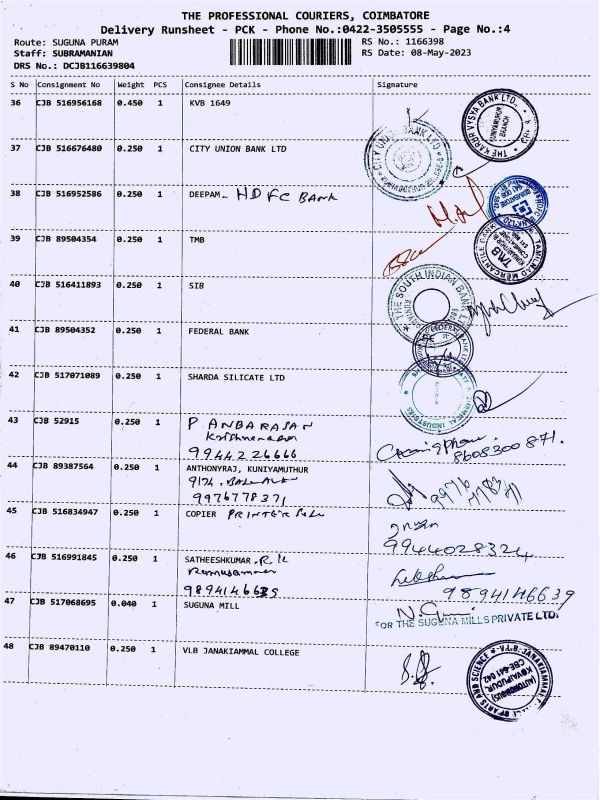 THE PROFESSIONAL COURIERS, COIMBATORE
Delivery Runsheet - PCK - Phone No.:0422-3505555 - Page No.:4
Route: SUGUNA PURAM
RS No.: 1166398
Staff: SUBRAMANIAN
RS Date: 08-May-2023
DRS No.: DCJB116639804
S No Consignment No Weight PCS Consignee Details Signature
36 CJB 516956168 0.450 1 KVB 1649
THE KARUR VYSYA BANK LTD.
KUNIYAMUTHUR BRANCH
37 CJB 516676480 0.250 1 CITY UNION BANK LTD
CITY UNION BANK LTD
38 CJB 516952586 0.250 1 DEEPAM - HDFC BANK
39 CJB 89504354 0.250 1 TMB
TAMILNAD MERCANTILE BANK
TMB
40 CJB 516411893 0.250 1 SIB
THE SOUTH INDIAN BANK
41 CJB 89504352 0.250 1 FEDERAL BANK
FEDERAL BANK
42 CJB 517071089 0.250 1 SHARDA SILICATE LTD
INDUSTRIES
43 CJB 52915 0.250 1 P ANBARASAN
9944226666
8608300871.
44 CJB 89387564 0.250 1 ANTHONYRAJ, KUNIYAMUTHUR
9976778371
45 CJB 516834947 0.250 1 COPIER PRINTER
9944028324
46 CJB 516991845 0.250 1 SATHEESHKUMAR. R.K
9894146639
9894146639
47 CJB 517068695 0.040 1 SUGUNA MILL
FOR THE SUGUNA MILLS PRIVATE LTD.
48 CJB 89470110 0.250 1 VLB JANAKIAMMAL COLLEGE
V.L.B. JANAKIAMMAL
OF ARTS AND SCIENCE
(AUTONOMOUS)
KOVAIPUDUR,
CBE-641 042